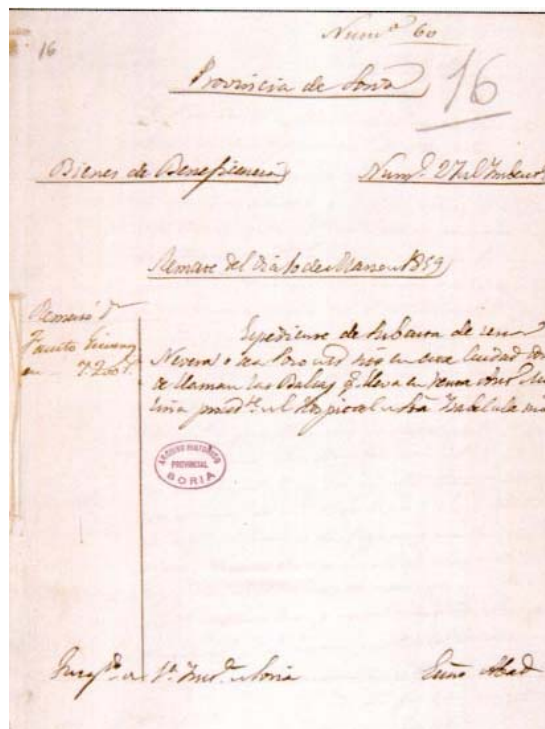 Num.º 60
16
Provincia de Soria
16
Bienes de Beneficencia
Num.º 27 del Inbent.º
Remate del dia 10 de Marzo 1859
Remató D.
Fausto
en 7.200 r.
Espediente de Subasta de una
Nevera o sea Pozo
en esta Ciudad
de llaman las Balsas q.e lleva en renta
el Hospital de Sta Isabel de la
ARCHIVO HISTORICO
PROVINCIAL
SORIA
Juzg.do de 1.ª Inst.ª de Soria
Abad